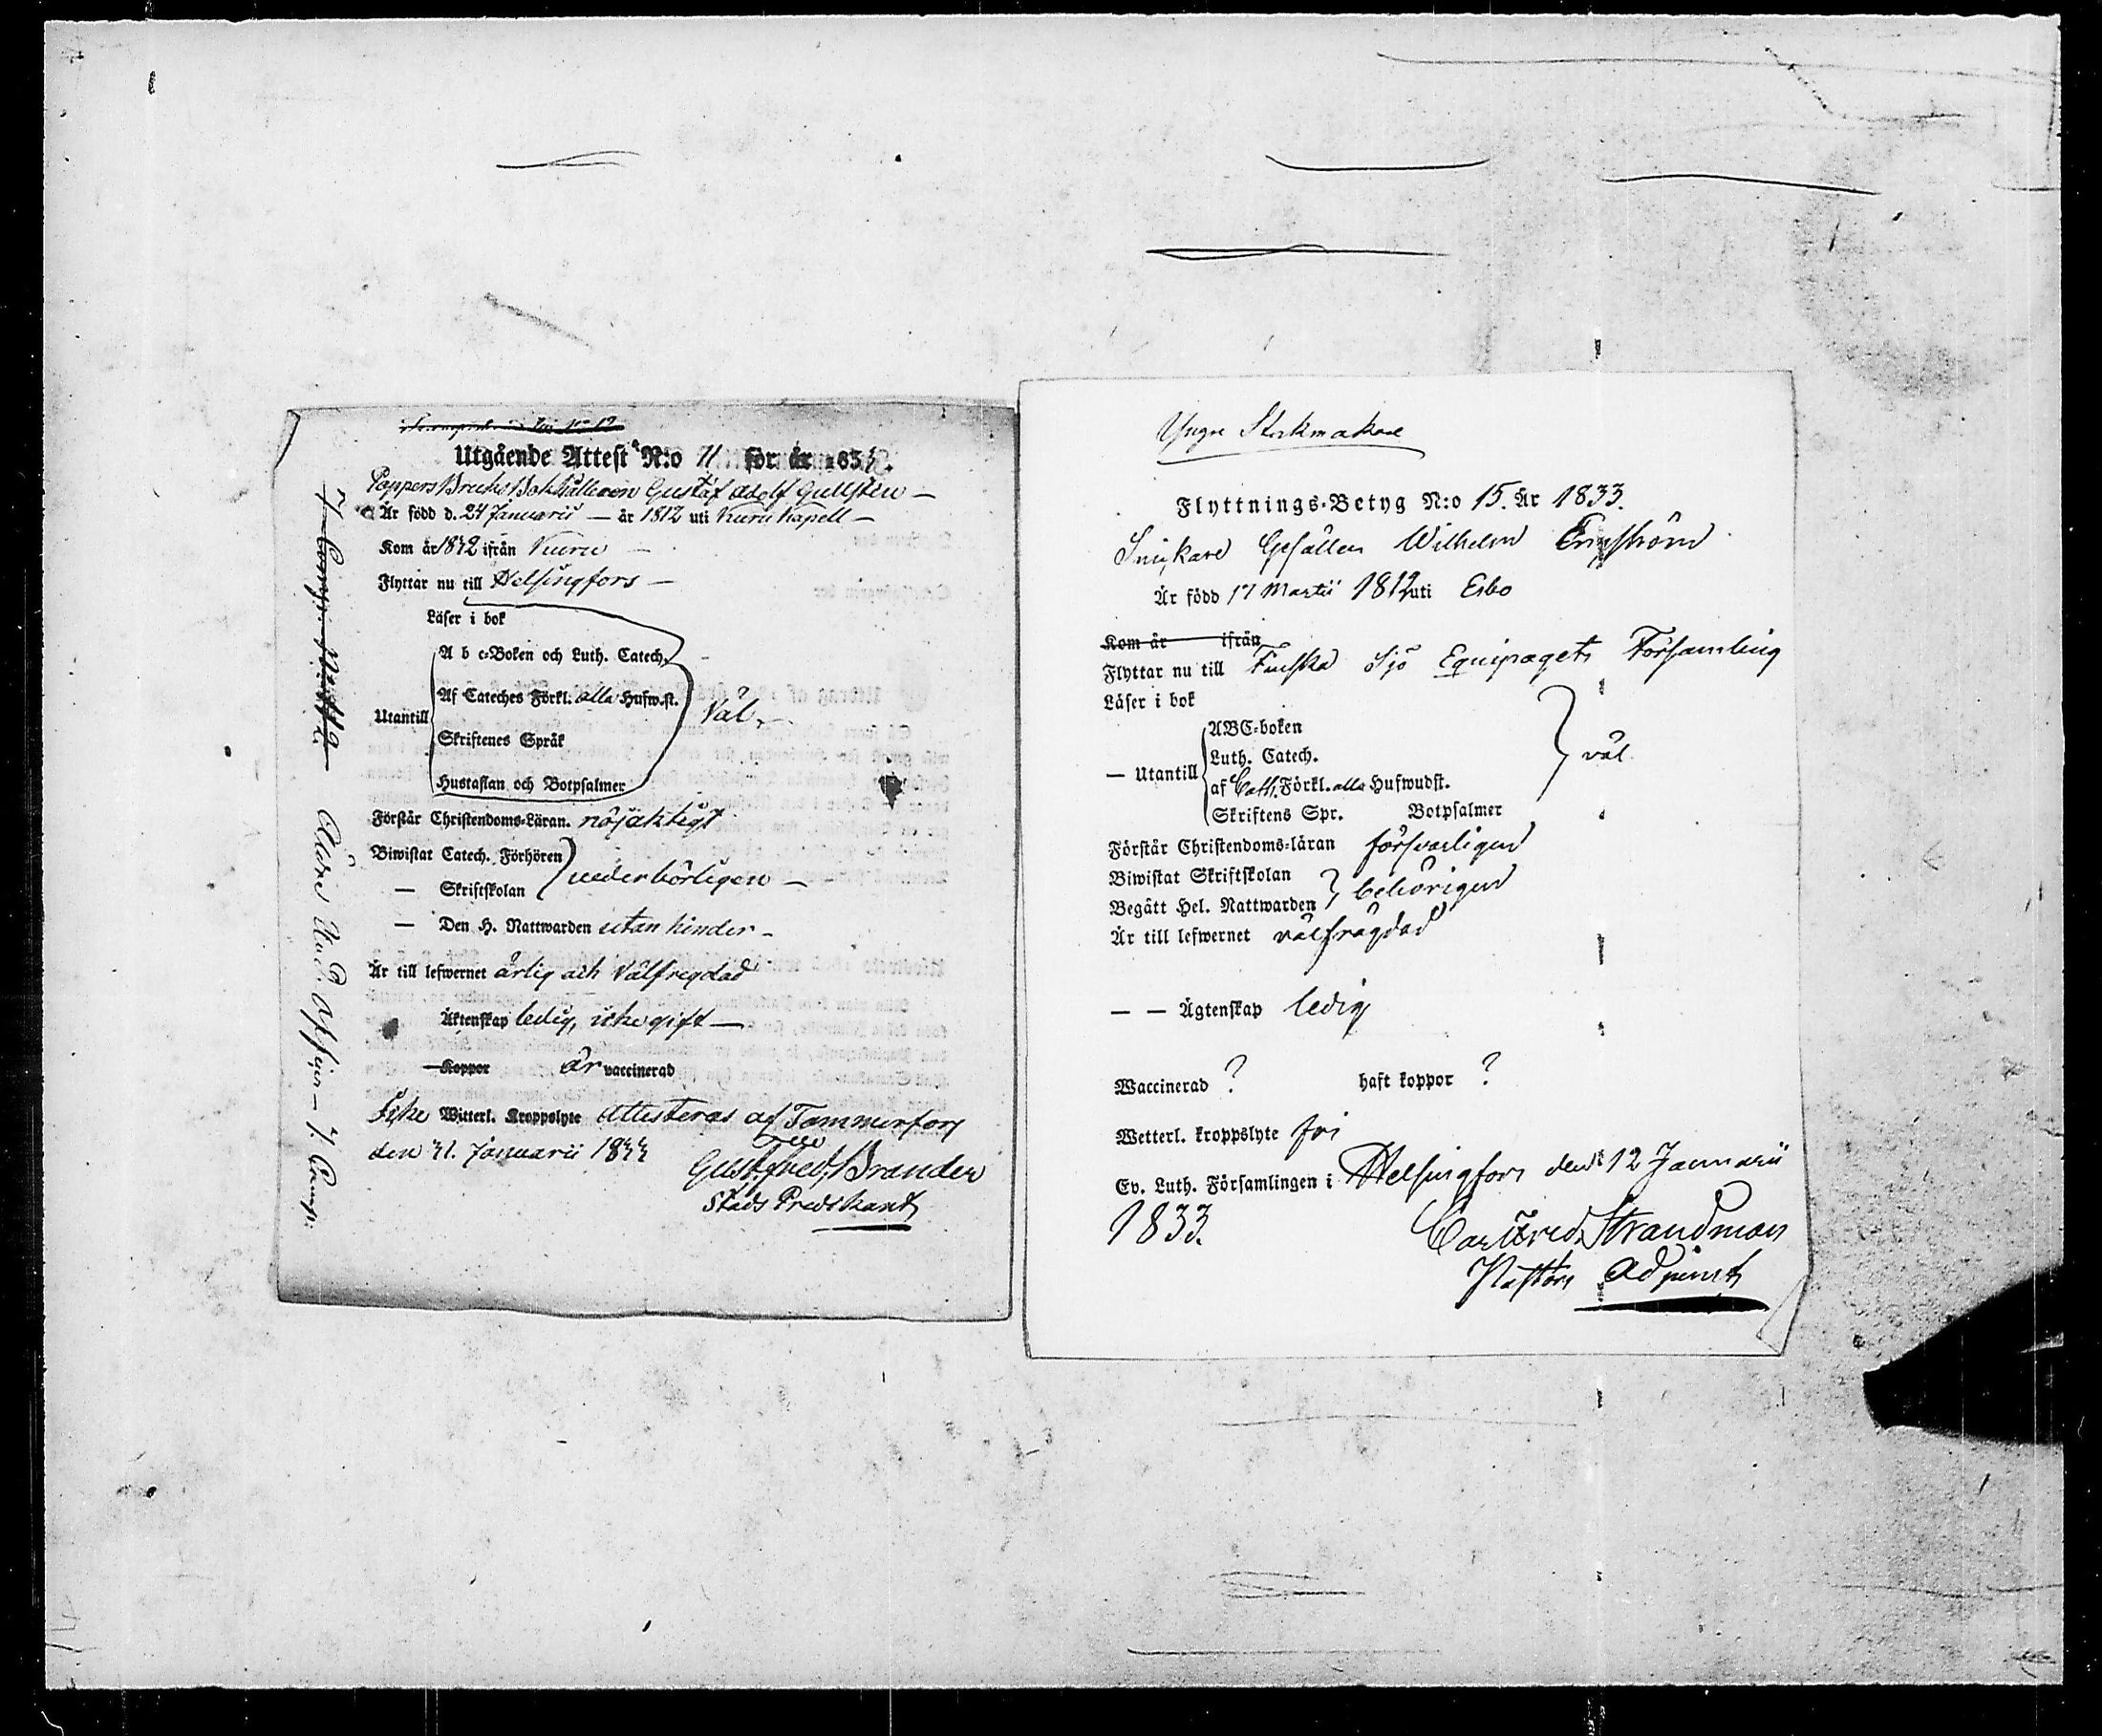 Utgående Attest N:o 11 för år 183
Pappers Bruks Bokhålleren Gustaf Adolf Gullsten —
Är född d. 24 Januarii — år 1812 uti Kuru Kapell —
Kom år 1832 ifrån Kuru —
Flyttar nu till Helsingfors —
Läser i bok
A b c-Boken och Luth. Catech.
Af Cateches Förkl. alla Hufw.st.
Utantill
Väl.
Skriftenes Språk
Hustaflan och Botpsalmer
Förstår Christendoms-Läran. nöjaktigt
Biwistat Catech. Förhören
— Skriftskolan
vederbörligen —
— Den H. Nattwarden utan hinder —
Är till lefwernet ärlig och välfregdad
Äktenskap ledig, icke gift —
Koppor är vaccinerad
Icke Witterl. Kroppslyte Attesteras af Tammerfors
den 31. Januarii 1833
Gust. Fred. Brander
Stads Predikant
Yngre Stockmakare
Flyttnings-Betyg N:o 15. År 1833.
Snickare Gesällen Wilhelm Engström
Är född 17 Martii 1812 uti Esbo
Kom år ifrån
Flyttar nu till Finska Sjö Equipagets Församling
Läser i bok
ABC-boken
Luth. Catech.
— Utantill
väl
af Cath. Förkl. alla Hufwudst.
Skriftens Spr. Botpsalmer
Förstår Christendoms-läran försvarligen
Biwistat Skriftskolan
Begått Hel. Nattwarden
behörigen
Är till lefwernet välfrägdad
— — Ägtenskap ledig
Waccinerad ? haft koppor ?
Wetterl. kroppslyte fri
Ev. Luth. Församlingen i Helsingfors den 12 Januarii
1833.
Carl Fred. Strandman
Pastors Adjunct